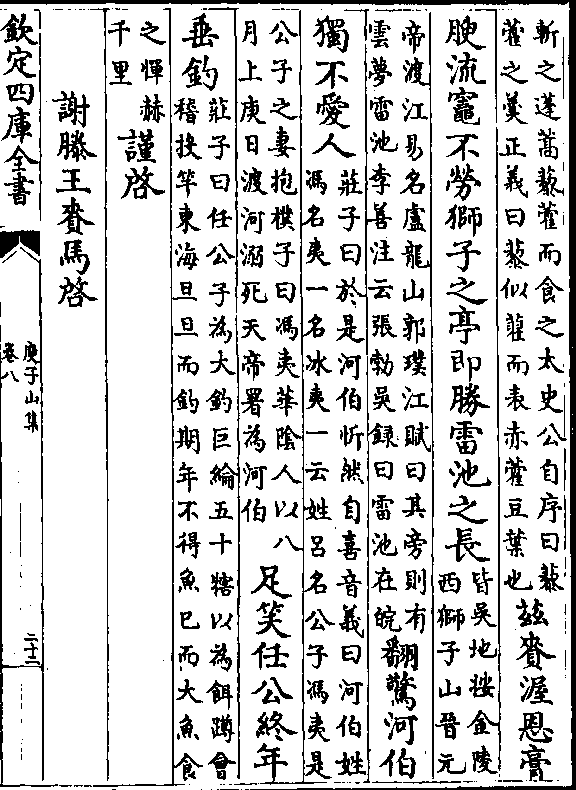 斬之蓬蒿藜藿而食之太史公自序曰藜
藿之羮正義曰藜似藿而表赤藿豆葉也
兹賚渥恩膏
腴流竈不勞獅子之亭即勝雷池之長
皆吳地按金陵
西獅子山晉元
帝渡江易名盧龍山郭璞江賦曰其旁則有
雲夢雷池李善注云張勃吳録曰雷池在皖
翻驚河伯
獨不愛人
莊子曰於是河伯忻然自喜音義曰河伯姓
馮名夷一名冰夷一云姓吕名公子馮夷是
公子之妻抱樸子曰馮夷華陰人以八
月上庚日渡河溺死天帝署為河伯
足笑任公終年
垂釣
莊子曰任公子為大釣巨綸五十犗以為餌蹲會
稽投竿東海旦旦而釣期年不得魚已而大魚食
之憚赫
千里
謹啓
謝滕王賚馬啓
欽定四庫全書
庾子山集
卷八
二十二